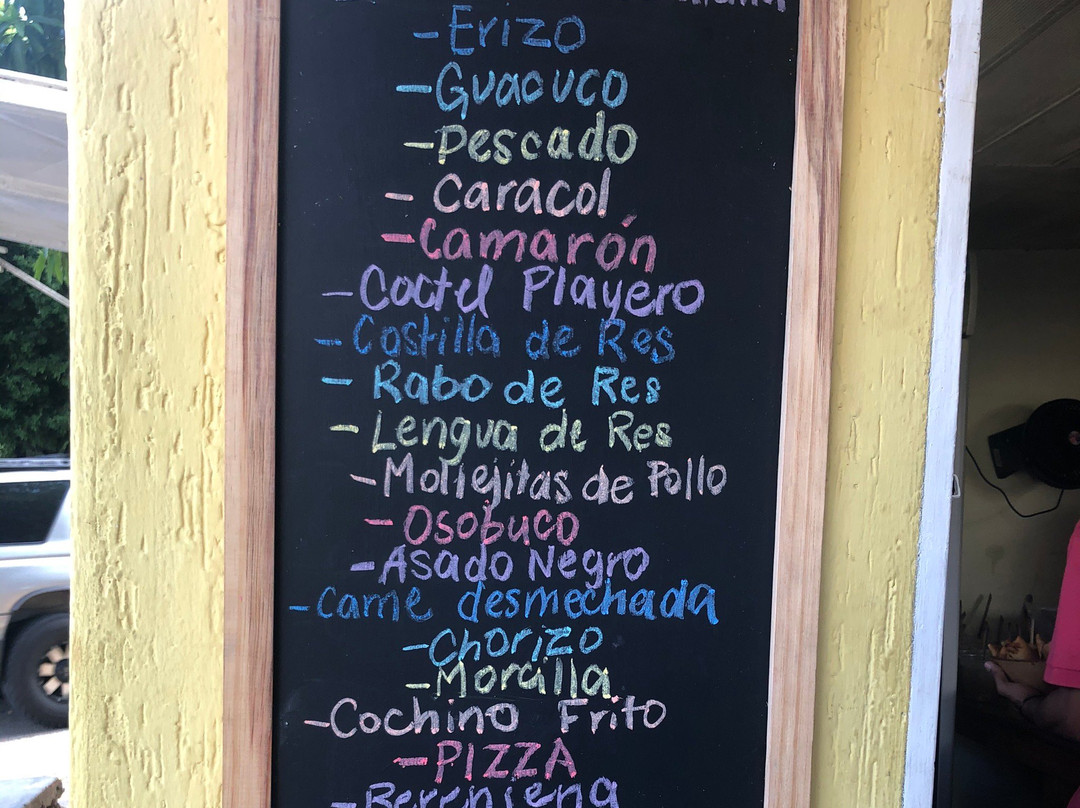 -Erizo
-Guacuco
-Pescado
- Caracol
-Camarón
-Coctel Playero
-Costilla de Res
- Rabo de Res
-Lengua de Res
-Mollejitas de Pollo
-Osobuco
-Asado Negro
-Carne desmechada
-Chorizo
-Morcilla
-Cochino Frito
-PIZZA
-Berenjena